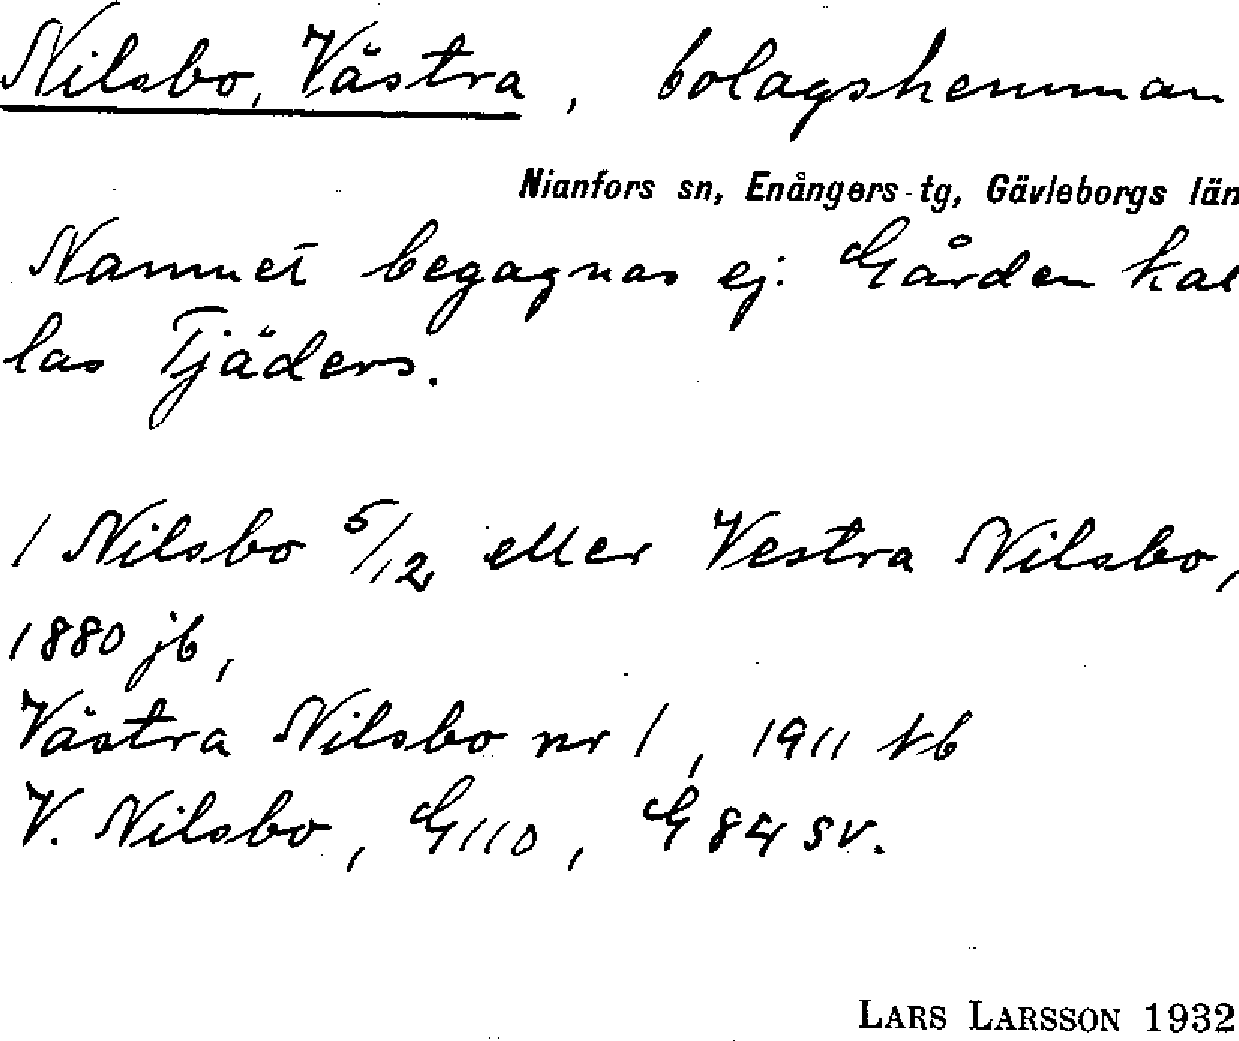 Nilsbo, Västra, bolagshemman
Nianfors sn, Enångers tg, Gävleborgs län
Namnet begagnas ej. Gården kal
las Tjäders.
1 Nilsbo 5/12 eller Vestra Nilsbo,
1880 jb,
Västra Nilsbo nr 1, 1911 kb
V. Nilsbo, G110, G 84 sv.
LARS LARSSON 1932